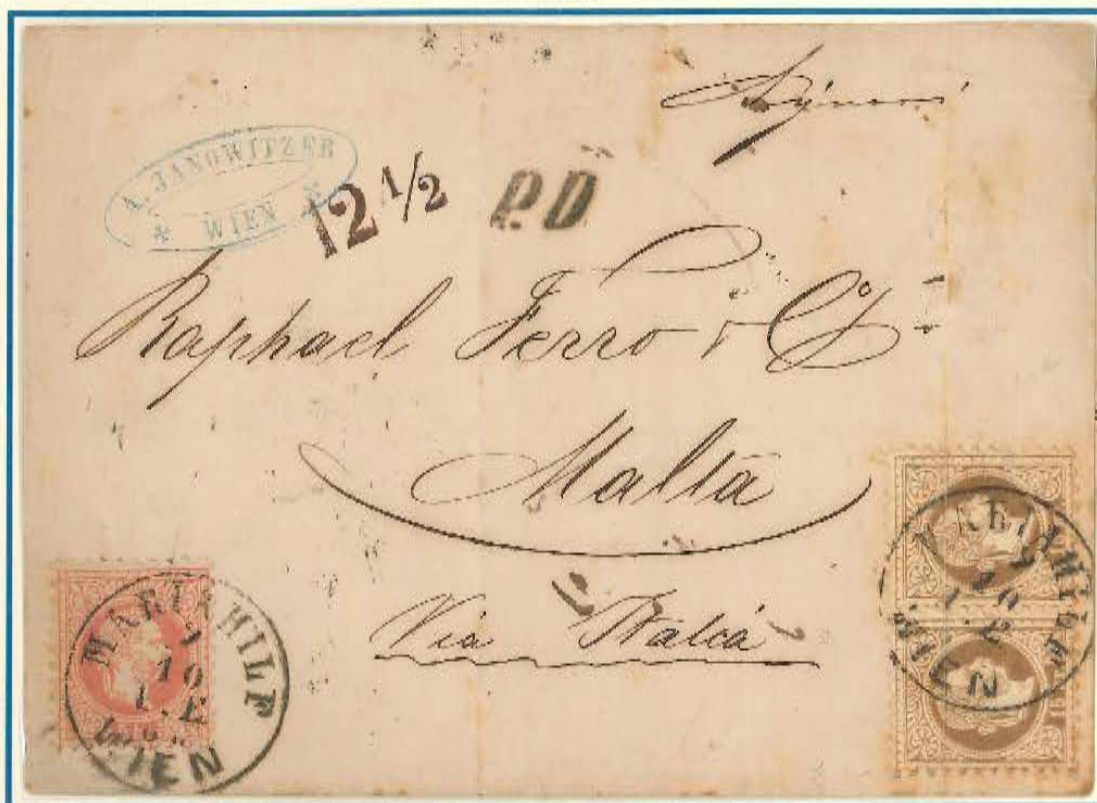 A. JANOWITZER
* WIEN *
12 1/2 P.D
Raphael Ferro & Cº
Malta
Via Italia
MARIAHILF
10
WIEN
MARIAHILF
10
WIEN